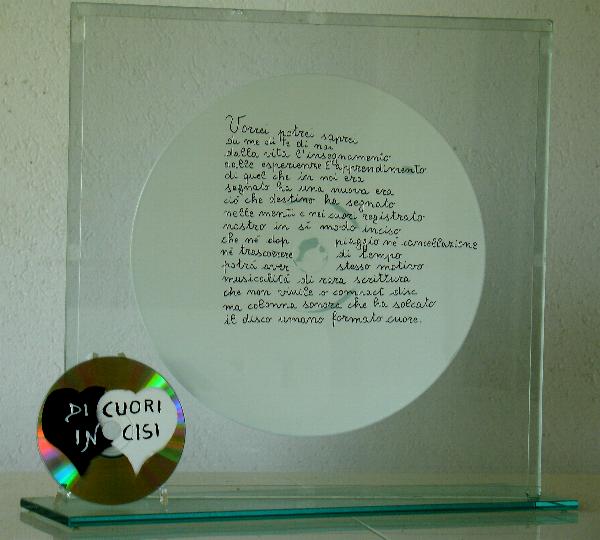 Vorrei potrei saprei
su me su te di noi
dalla vita l'insegnamento
dalle esperienze l'apprendimento
di quel che in noi era
segnato ha una nuova era
ciò che destino ha segnato
nelle menti e nei cuori registrato
nastro in si modo inciso
che né dop piaggio né cancellazione
né trascorrere di tempo
potrà aver stesso motivo
musicalità di rara scrittura
che non vinile o compact disc
ma colonna sonora che ha solcato
il disco umano formato cuore.
DI CUORI
IN CISI